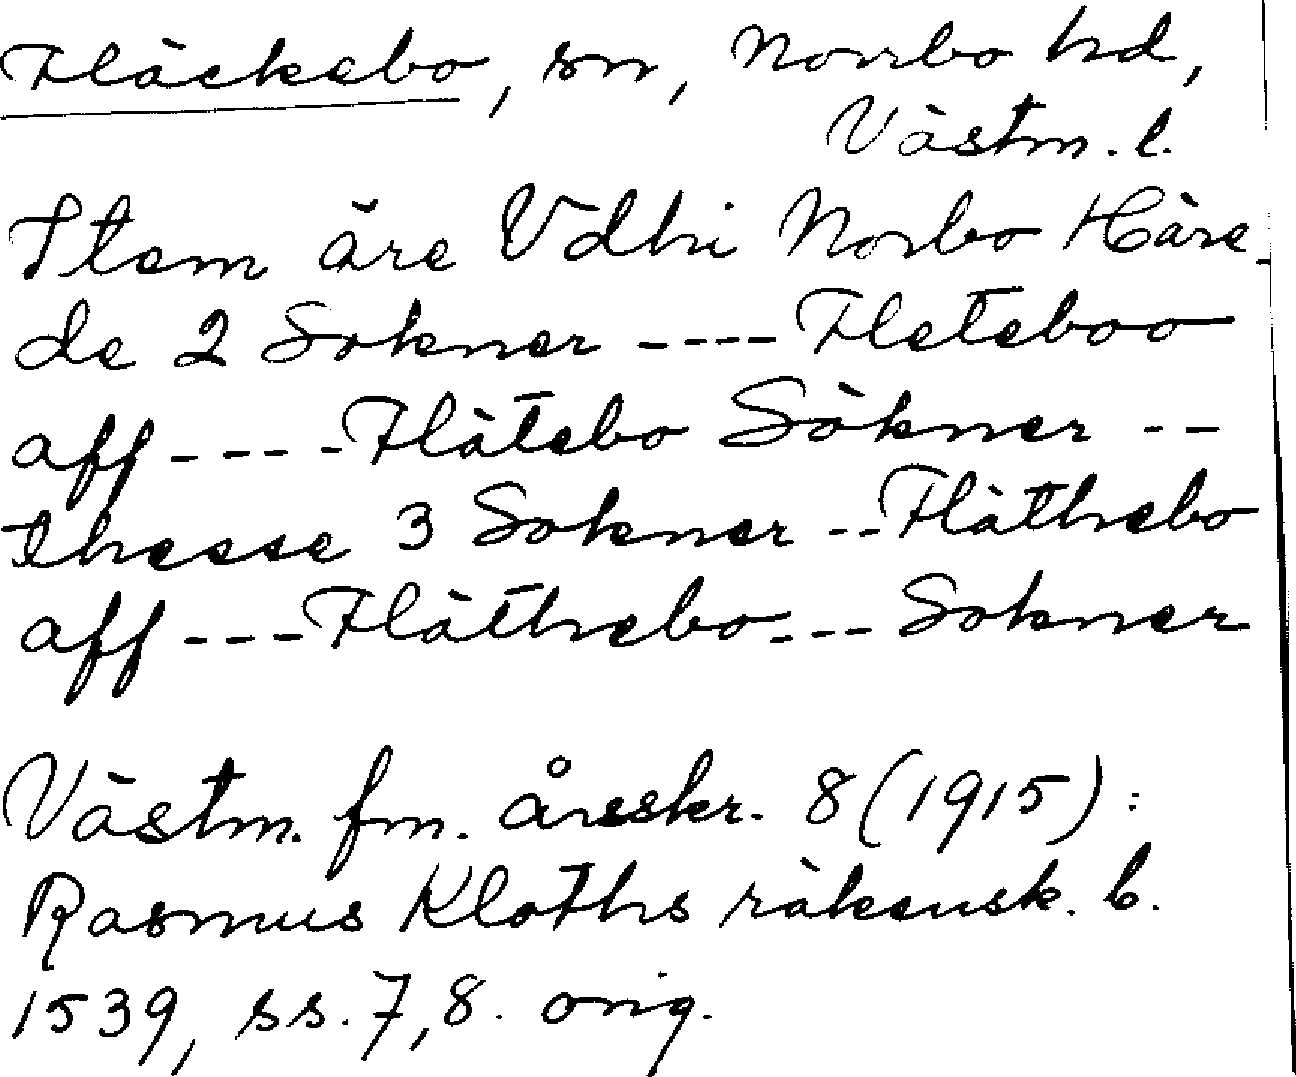 Fläckebo, sn, Norrbo hd,
Västm. l.
Item äre Vdhi Norbo Häre-
de 2 Sokner ---- Fleteboo
aff ---- Flätebo Sökner --
thesse 3 Sokner -- Fläthebo
aff --- Fläthebo --- Sokner
Västm. fm. årsskr. 8 (1915):
Rasmus Kloths räkensk. b.
1539, ss. 7, 8. orig.